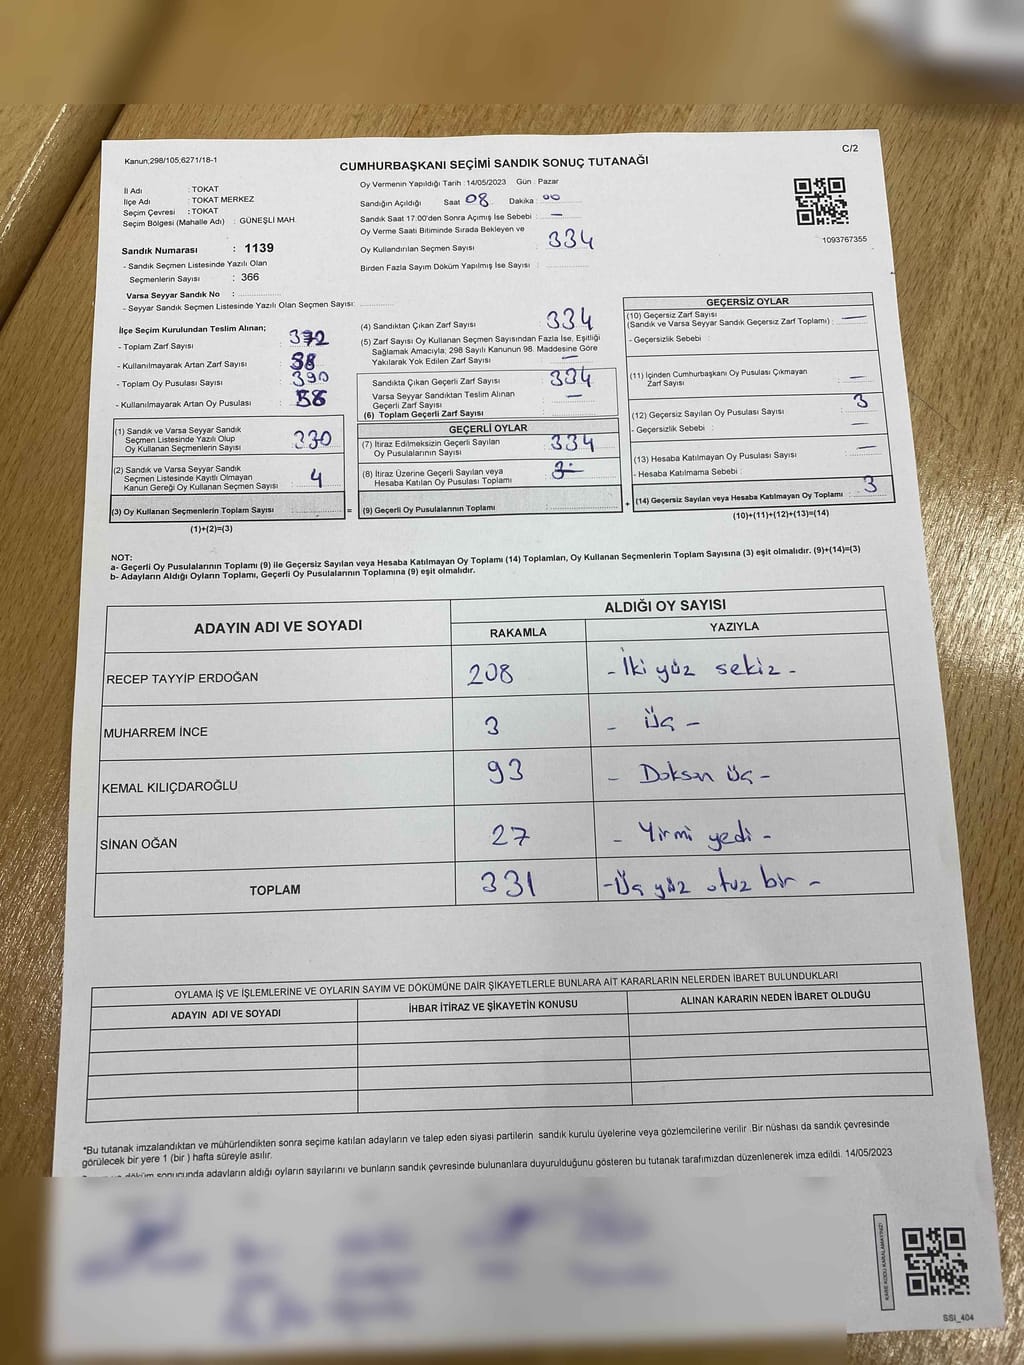 Kanun;298/105,6271/18-1
C/2
CUMHURBAŞKANI SEÇİMİ SANDIK SONUÇ TUTANAĞI
İl Adı : TOKAT
İlçe Adı : TOKAT MERKEZ
Seçim Çevresi : TOKAT
Seçim Bölgesi (Mahalle Adı) : GÜNEŞLİ MAH
Sandık Numarası : 1139
- Sandık Seçmen Listesinde Yazılı Olan
Seçmenlerin Sayısı : 366
Varsa Seyyar Sandık No :
- Seyyar Sandık Seçmen Listesinde Yazılı Olan Seçmen Sayısı:
Oy Vermenin Yapıldığı Tarih : 14/05/2023 Gün : Pazar
Sandığın Açıldığı Saat 08 Dakika : 00
Sandık Saat 17:00'den Sonra Açımış İse Sebebi : —
Oy Verme Saati Bitiminde Sırada Bekleyen ve
Oy Kullandırılan Seçmen Sayısı : 334
Birden Fazla Sayım Döküm Yapılmış İse Sayısı :
1093767355
İlçe Seçim Kurulundan Teslim Alınan;
- Toplam Zarf Sayısı : 372
- Kullanılmayarak Artan Zarf Sayısı : 38
- Toplam Oy Pusulası Sayısı : 390
- Kullanılmayarak Artan Oy Pusulası :
(1) Sandık ve Varsa Seyyar Sandık
Seçmen Listesinde Yazılı Olup
Oy Kullanan Seçmenlerin Sayısı : 330
(2) Sandık ve Varsa Seyyar Sandık
Seçmen Listesinde Kayıtlı Olmayan
Kanun Gereği Oy Kullanan Seçmen Sayısı : 4
(3) Oy Kullanan Seçmenlerin Toplam Sayısı :
(1)+(2)=(3)
(4) Sandıktan Çıkan Zarf Sayısı : 334
(5) Zarf Sayısı Oy Kullanan Seçmen Sayısından Fazla İse, Eşitliği
Sağlamak Amacıyla; 298 Sayılı Kanunun 98. Maddesine Göre
Yakılarak Yok Edilen Zarf Sayısı : —
Sandıkta Çıkan Geçerli Zarf Sayısı : 334
Varsa Seyyar Sandıktan Teslim Alınan
Geçerli Zarf Sayısı : —
(6) Toplam Geçerli Zarf Sayısı :
GEÇERLİ OYLAR
(7) İtiraz Edilmeksizin Geçerli Sayılan
Oy Pusulalarının Sayısı : 334
(8) İtiraz Üzerine Geçerli Sayılan veya
Hesaba Katılan Oy Pusulası Toplamı :
= (9) Geçerli Oy Pusulalarının Toplamı : +
GEÇERSİZ OYLAR
(10) Geçersiz Zarf Sayısı
(Sandık ve Varsa Seyyar Sandık Geçersiz Zarf Toplamı) : —
- Geçersizlik Sebebi :
(11) İçinden Cumhurbaşkanı Oy Pusulası Çıkmayan
Zarf Sayısı : —
(12) Geçersiz Sayılan Oy Pusulası Sayısı : 3
- Geçersizlik Sebebi : —
(13) Hesaba Katılmayan Oy Pusulası Sayısı : —
- Hesaba Katılmama Sebebi :
(14) Geçersiz Sayılan veya Hesaba Katılmayan Oy Toplamı : 3
(10)+(11)+(12)+(13)=(14)
NOT:
a- Geçerli Oy Pusulalarının Toplamı (9) ile Geçersiz Sayılan veya Hesaba Katılmayan Oy Toplamı (14) Toplamları, Oy Kullanan Seçmenlerin Toplam Sayısına (3) eşit olmalıdır. (9)+(14)=(3)
b- Adayların Aldığı Oyların Toplamı, Geçerli Oy Pusulalarının Toplamına (9) eşit olmalıdır.
ADAYIN ADI VE SOYADI
ALDIĞI OY SAYISI
RAKAMLA YAZIYLA
RECEP TAYYİP ERDOĞAN 208 - İki yüz sekiz -
MUHARREM İNCE 3 - Üç -
KEMAL KILIÇDAROĞLU 93 - Doksan üç -
SİNAN OĞAN 27 - Yirmi yedi -
TOPLAM 331 - Üç yüz otuz bir -
OYLAMA İŞ VE İŞLEMLERİNE VE OYLARIN SAYIM VE DÖKÜMÜNE DAİR ŞİKAYETLERLE BUNLARA AİT KARARLARIN NELERDEN İBARET BULUNDUKLARI
ADAYIN ADI VE SOYADI İHBAR İTİRAZ VE ŞİKAYETİN KONUSU ALINAN KARARIN NEDEN İBARET OLDUĞU
*Bu tutanak imzalandıktan ve mühürlendikten sonra seçime katılan adayların ve talep eden siyasi partilerin sandık kurulu üyelerine veya gözlemcilerine verilir .Bir nüshası da sandık çevresinde
görülecek bir yere 1 (bir ) hafta süreyle asılır.
döküm sonucunda adayların aldığı oyların sayılarını ve bunların sandık çevresinde bulunanlara duyurulduğunu gösteren bu tutanak tarafımızdan düzenlenerek imza edildi. 14/05/2023
KARE KODU KARALAMAYINIZ!
SSI_404